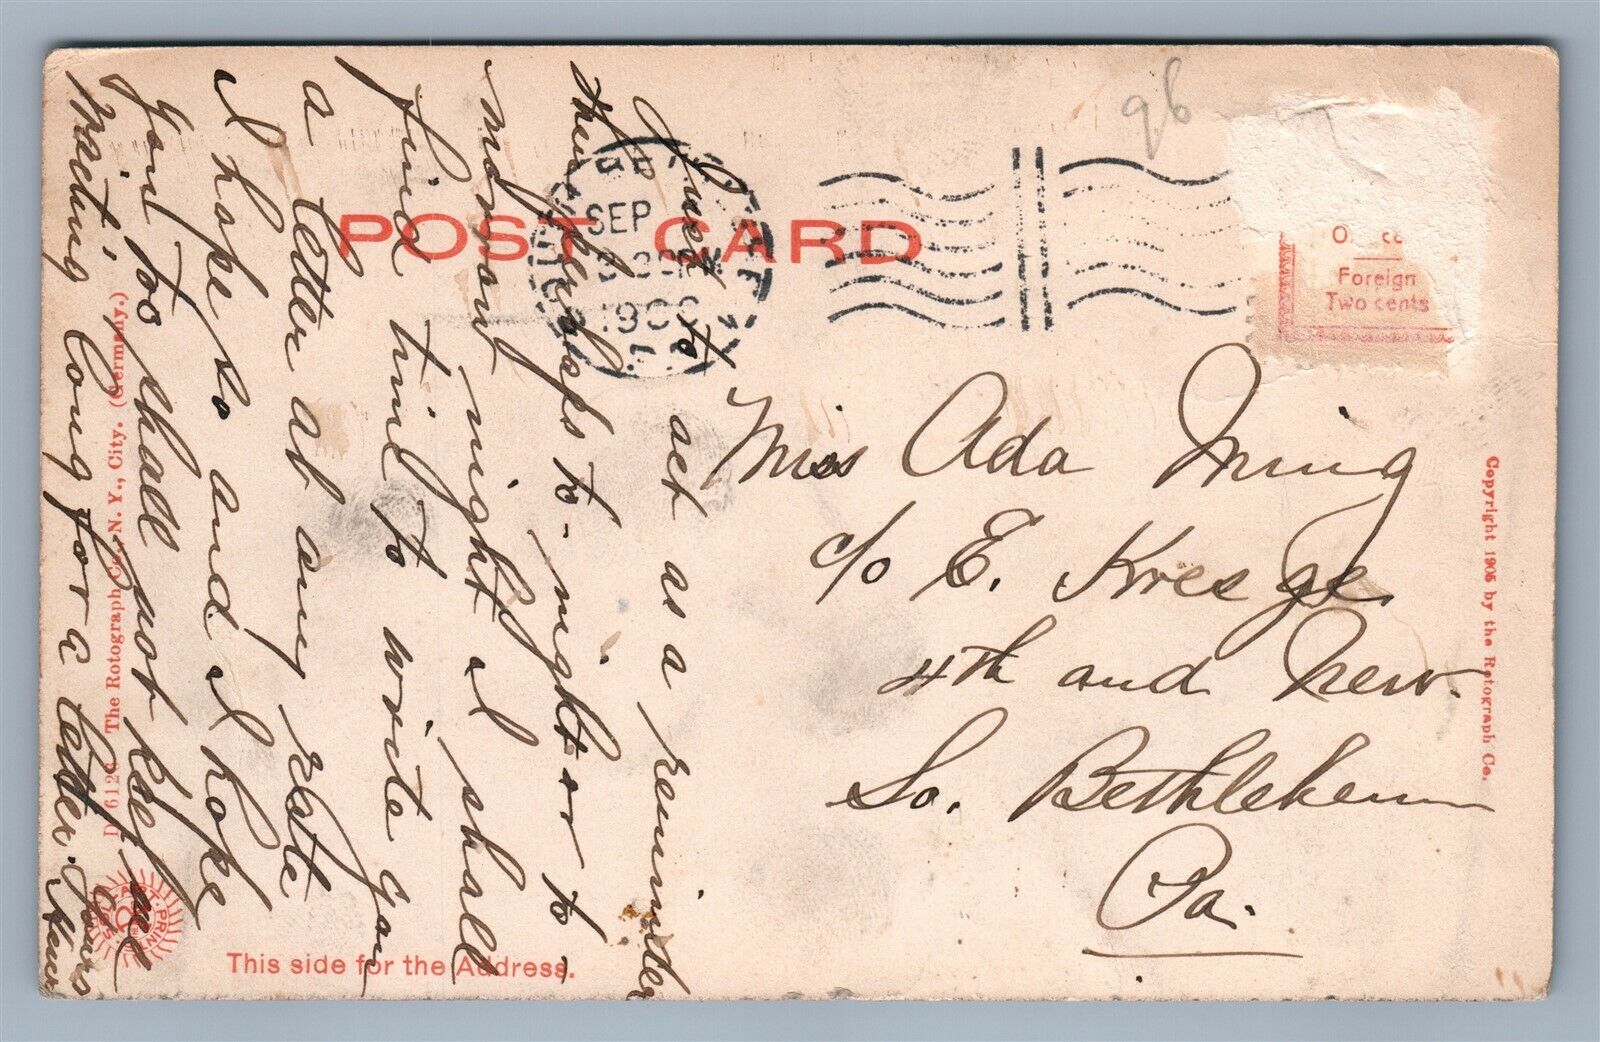 96
POST CARD
SEP
190
O
Foreign
Two cents
Miss Ada Ming
c/o E. Kresge
4th and New.
So. Bethlehem
Pa.
Just to act as a reminder
this, perhaps to-night or to
morrow night I shall
find time to write you
a letter at any rate
I hope so and I hope
you too shall not keep me
waiting long for a letter. Yours
This side for the Address.
D 6126 The Rotograph Co., N. Y., City. (Germany.)
Copyright 1905 by the Rotograph Co.